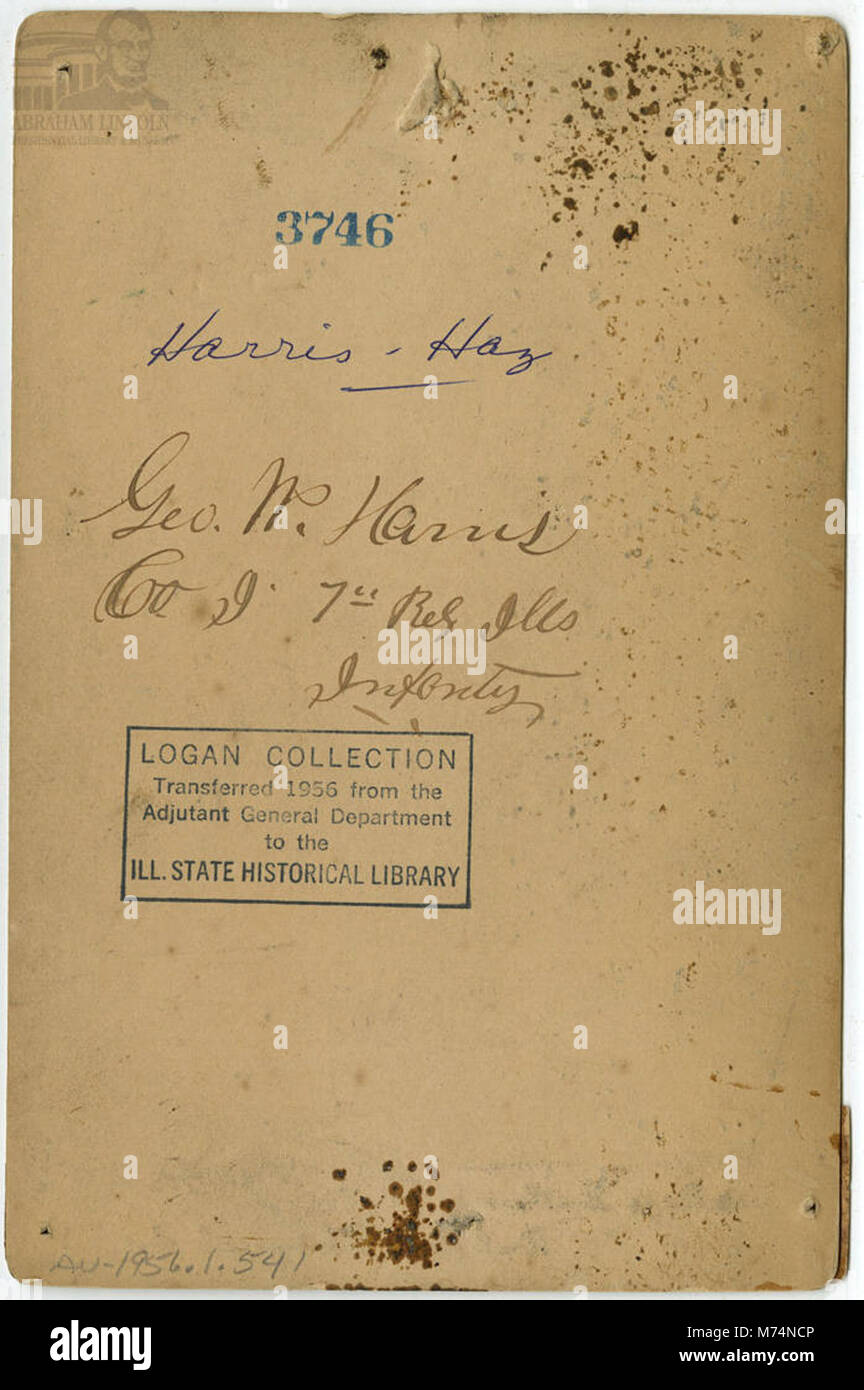 ABRAHAM LINCOLN
3746
Harris - Haz
Geo. W. Harris
Co I 7th Reg Ills
Infanty
LOGAN COLLECTION
Transferred 1956 from the
Adjutant General Department
to the
ILL. STATE HISTORICAL LIBRARY
AV-1956.1.541
alamy
alamy
alamy
alamy
alamy
Image ID: M74NCP
www.alamy.com